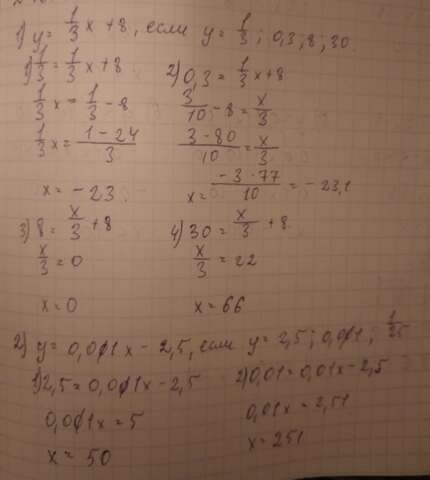 1) y = 1/3 x + 8, если y = 1/3; 0,3; 8; 30.
1) 1/3 = 1/3 x + 8
1/3 x = 1/3 - 8
1/3 x = (1 - 24)/3
x = -23
2) 0,3 = 1/3 x + 8
3/10 - 8 = x/3
(3 - 80)/10 = x/3
x = (-3·77)/10 = -23,1
3) 8 = x/3 + 8
x/3 = 0
x = 0
4) 30 = x/3 + 8
x/3 = 22
x = 66
2) y = 0,01x - 2,5, если y = 2,5; 0,01; 1/25
1) 2,5 = 0,01x - 2,5
0,01x = 5
x = 50
2) 0,01 = 0,01x - 2,5
0,01x = 2,51
x = 251